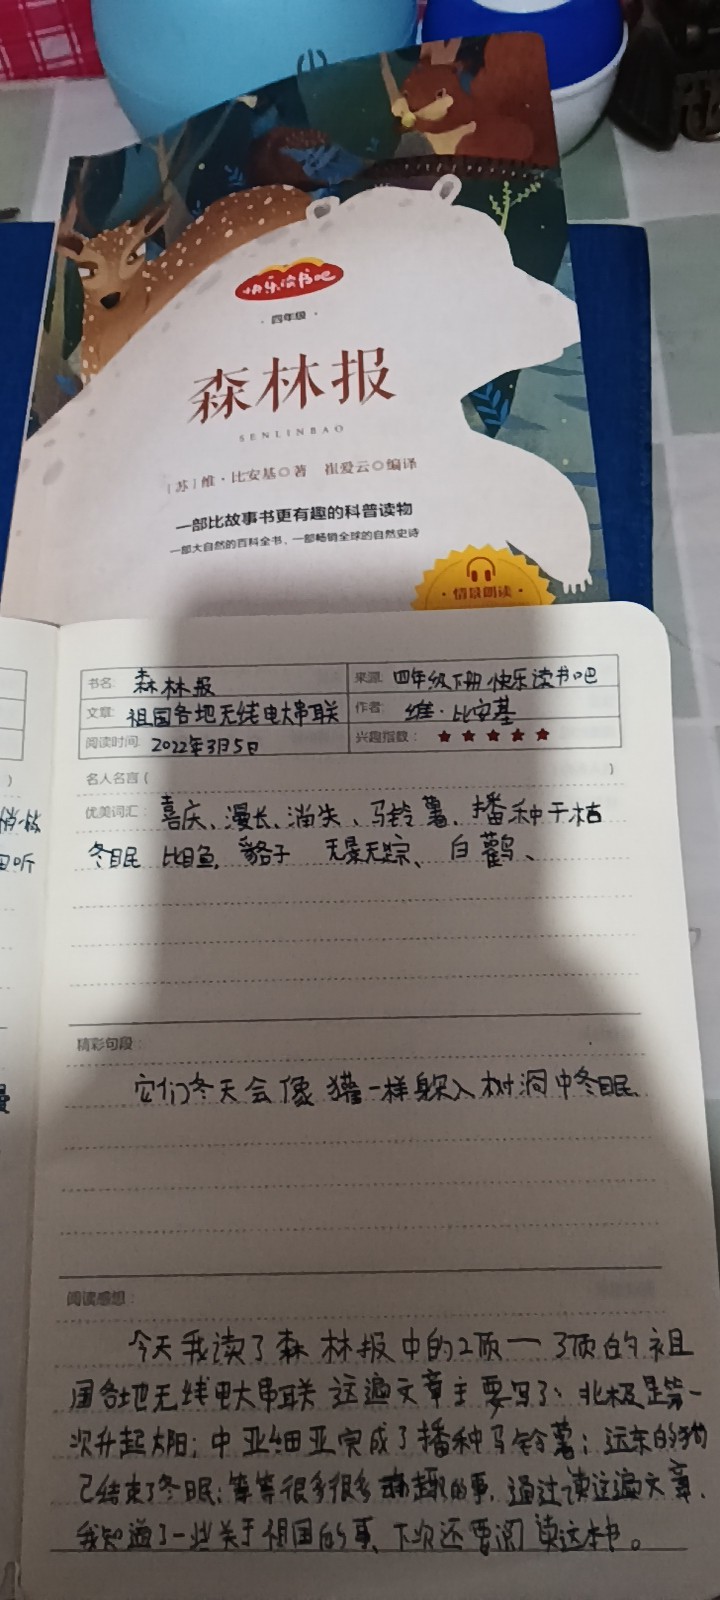 快乐读书吧
·四年级·
森林报
SENLINBAO
[苏]维·比安基◎著 崔爱云◎编译
一部比故事书更有趣的科普读物
一部大自然的百科全书，一部畅销全球的自然史诗
·情景朗读·
书名: 森林报 来源: 四年级下册快乐读书吧
文章: 祖国各地无线电大串联 作者: 维·比安基
阅读时间: 2022年3月5日 兴趣指数: ★★★★★
名人名言 ( )
优美词汇: 喜庆、漫长、消失、马铃薯、播种干枯
冬眠 比目鱼, 貉子 无景无踪、白鹳、
精彩句段:
它们冬天会像獾一样躲入树洞中冬眠、
阅读感想:
今天我读了森林报中的2页一3页的祖
国各地无线电大串联这遍文章主要写了: 北极是第一
次升起太阳; 中亚细亚完成了播种马铃薯; 远东的狗
已结束了冬眠; 等等很多很多 趣的事, 通过读这遍文章,
我知道了一些关于祖国的事、下次还要阅读这本书。